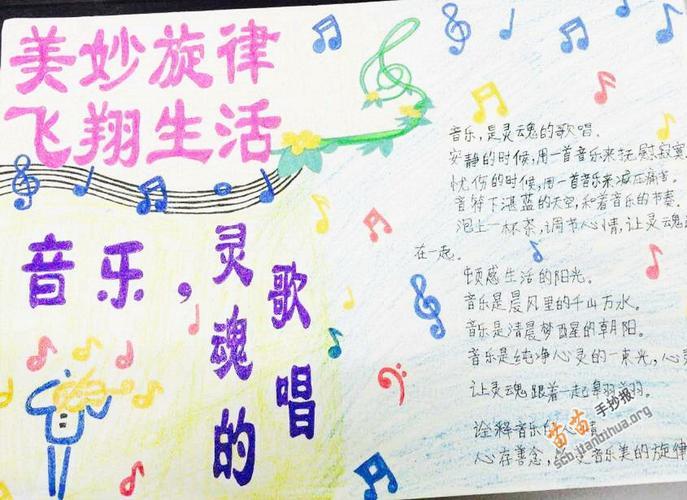 美妙旋律
飞翔生活
音乐，灵魂的
歌唱
音乐，是灵魂的歌唱.
安静的时候，用一首音乐来抚慰寂寞
忧伤的时候，用一首音乐来减压痛苦.
音符下湛蓝的天空，和着音乐的节奏.
泡上一杯茶，调节心情，让灵魂
在一起.
顿感生活的阳光。
音乐是晨风里的千山万水。
音乐是清晨梦醒的朝阳。
音乐是纯净心灵的一束光，心
让灵魂跟着一起翱翔.
诠释音乐的
心存善念，音乐美的旋律
苗苗手抄报
scb.jianbihua.org